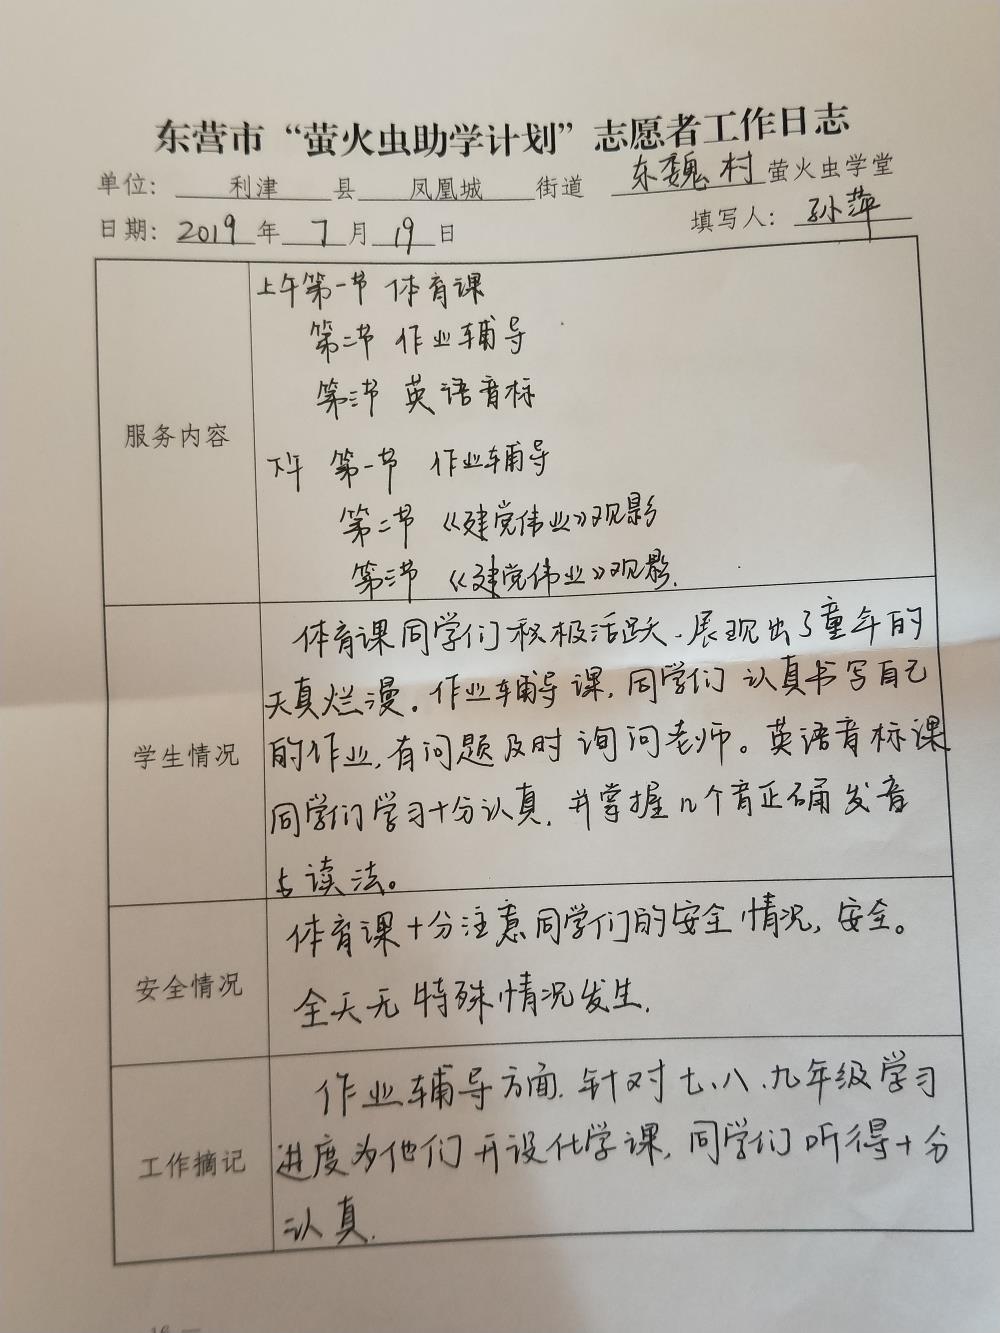 东营市“萤火虫助学计划”志愿者工作日志
单位： 利津 县 凤凰城 街道 东魏村 萤火虫学堂
日期：2019 年 7 月 19 日 填写人：孙萍
服务内容
上午第一节 体育课
第二节 作业辅导
第三节 英语音标
下午 第一节 作业辅导
第二节 《建党伟业》观影
第三节 《建党伟业》观影.
学生情况
体育课同学们积极活跃、展现出了童年的
天真烂漫。作业辅导课，同学们认真书写自己
的作业，有问题及时询问老师。英语音标课
同学们学习十分认真，并掌握几个音正确发音
与读法。
安全情况
体育课十分注意同学们的安全情况，安全。
全天无特殊情况发生.
工作摘记
作业辅导方面，针对七、八、九年级学习
进度为他们开设化学课，同学们听得十分
认真.